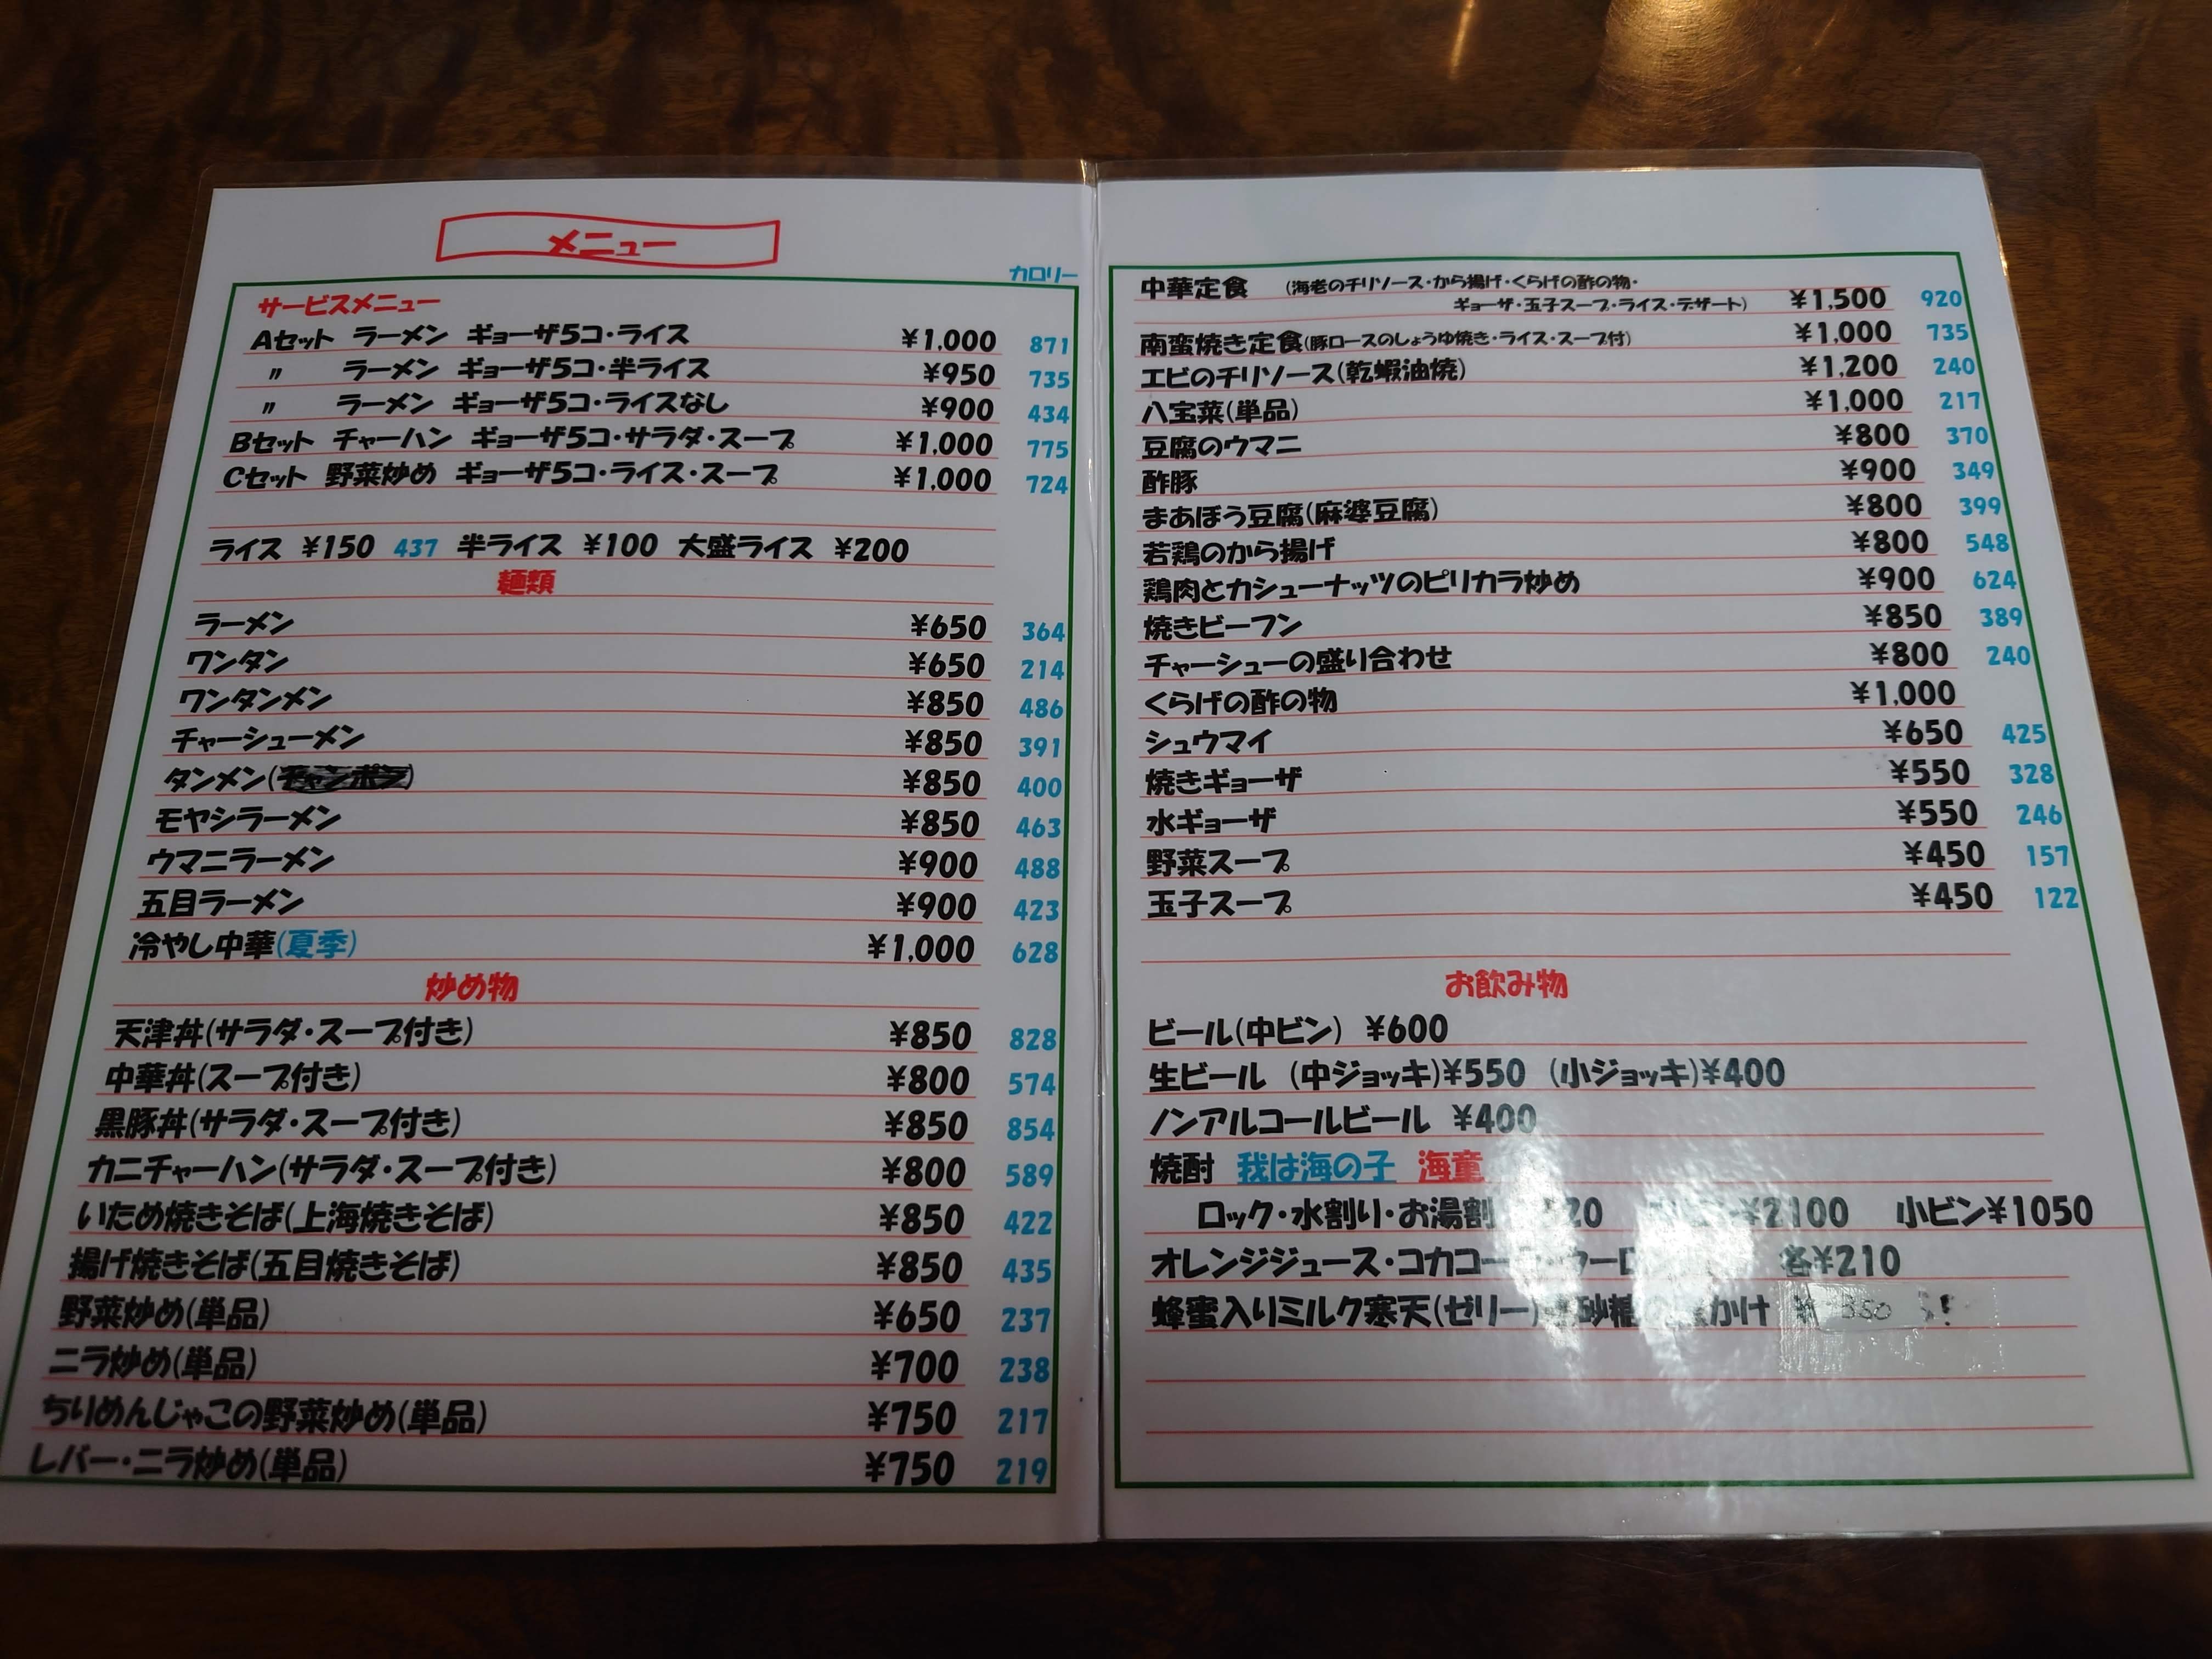 メニュー
カロリー
サービスメニュー
Aセット ラーメン ギョーザ5コ・ライス ¥1,000 871
〃 ラーメン ギョーザ5コ・半ライス ¥950 735
〃 ラーメン ギョーザ5コ・ライスなし ¥900 434
Bセット チャーハン ギョーザ5コ・サラダ・スープ ¥1,000 775
Cセット 野菜炒め ギョーザ5コ・ライス・スープ ¥1,000 724
ライス ¥150 437 半ライス ¥100 大盛ライス ¥200
麺類
ラーメン ¥650 364
ワンタン ¥650 214
ワンタンメン ¥850 486
チャーシューメン ¥850 391
タンメン ¥850 400
モヤシラーメン ¥850 463
ウマニラーメン ¥900 488
五目ラーメン ¥900 423
冷やし中華(夏季) ¥1,000 628
炒め物
天津丼(サラダ・スープ付き) ¥850 828
中華丼(スープ付き) ¥800 574
黒豚丼(サラダ・スープ付き) ¥850 854
カニチャーハン(サラダ・スープ付き) ¥800 589
いため焼きそば(上海焼きそば) ¥850 422
揚げ焼きそば(五目焼きそば) ¥850 435
野菜炒め(単品) ¥650 237
ニラ炒め(単品) ¥700 238
ちりめんじゃこの野菜炒め(単品) ¥750 217
レバー・ニラ炒め(単品) ¥750 219
中華定食 (海老のチリソース・から揚げ・くらげの酢の物・
ギョーザ・玉子スープ・ライス・デザート) ¥1,500 920
南蛮焼き定食(豚ロースのしょうゆ焼き・ライス・スープ付) ¥1,000 735
エビのチリソース(乾蝦油焼) ¥1,200 240
八宝菜(単品) ¥1,000 217
豆腐のウマニ ¥800 370
酢豚 ¥900 349
まあぼう豆腐(麻婆豆腐) ¥800 399
若鶏のから揚げ ¥800 548
鶏肉とカシューナッツのピリカラ炒め ¥900 624
焼きビーフン ¥850 389
チャーシューの盛り合わせ ¥800 240
くらげの酢の物 ¥1,000
シュウマイ ¥650 425
焼きギョーザ ¥550 328
水ギョーザ ¥550 246
野菜スープ ¥450 157
玉子スープ ¥450 122
お飲み物
ビール(中ビン) ¥600
生ビール (中ジョッキ)¥550 (小ジョッキ)¥400
ノンアルコールビール ¥400
焼酎 我は海の子 海童
ロック・水割り・お湯割 ¥2100 小ビン¥1050
オレンジジュース・ 各¥210
蜂蜜入りミルク寒天(ゼリー)